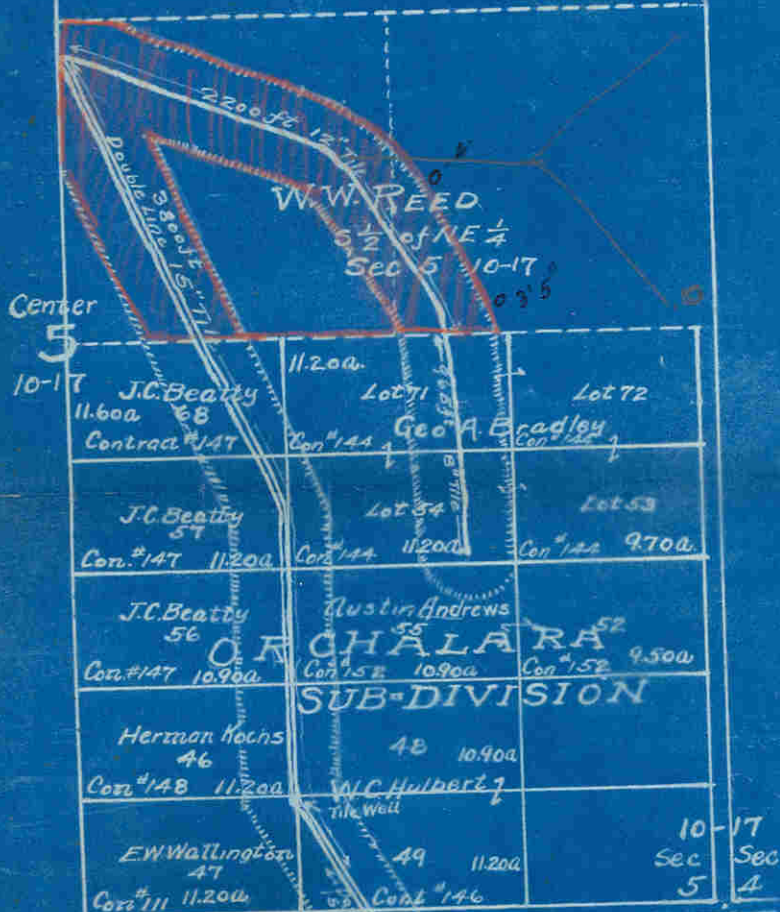 2200 ft. 12" Tile
Double Line 15" Tile
3800 ft
W.W. REED
S ½ of NE ¼
Sec 5 10-17
0 3' 5"
Center
5
10-17
J.C. Beatty
68
11.60a
Contract #147
11.20a.
Lot 71
Con #144
Geo A. Bradley
Lot 72
Con #144
8" Tile
J.C. Beatty
57
Con. #147 11.20a
Lot 54
Con #144 11.20a
Lot 53
Con #144 9.70a
J.C. Beatty
56
Con. #147 10.90a
Austin Andrews
55
Con #152 10.90a
52
Con #152 9.50a
ORCHALARA
SUB-DIVISION
Herman Kochs
46
Con #148 11.20a
48 10.90a
W.C. Hulpert
Tile Well
E.W. Wallington
47
Con #111 11.20a
49 11.20a
Cont #146
10-17
Sec
5
Sec
4